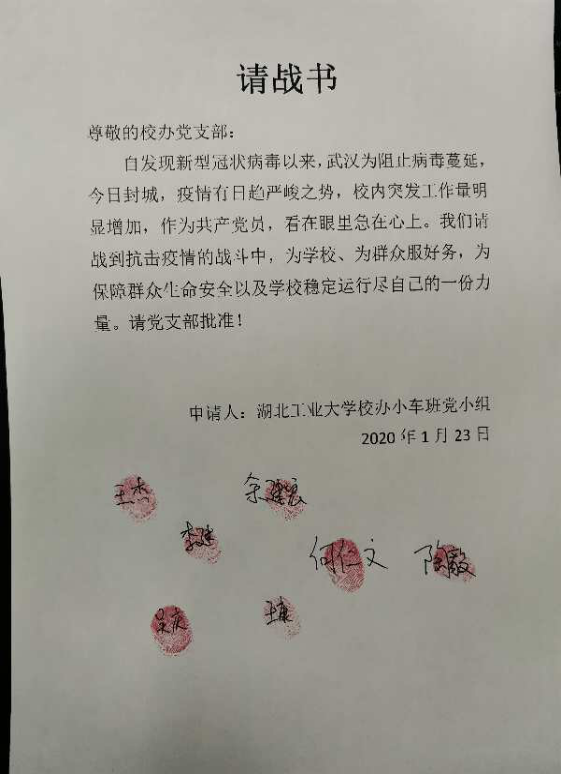 请战书
尊敬的校办党支部：
自发现新型冠状病毒以来，武汉为阻止病毒蔓延，
今日封城，疫情有日趋严峻之势，校内突发工作量明
显增加，作为共产党员，看在眼里急在心上。我们请
战到抗击疫情的战斗中，为学校、为群众服好务，为
保障群众生命安全以及学校稳定运行尽自己的一份力
量。请党支部批准！
申请人：湖北工业大学校办小车班党小组
2020 年 1 月 23 日
王杰
李建
何仁文
王康